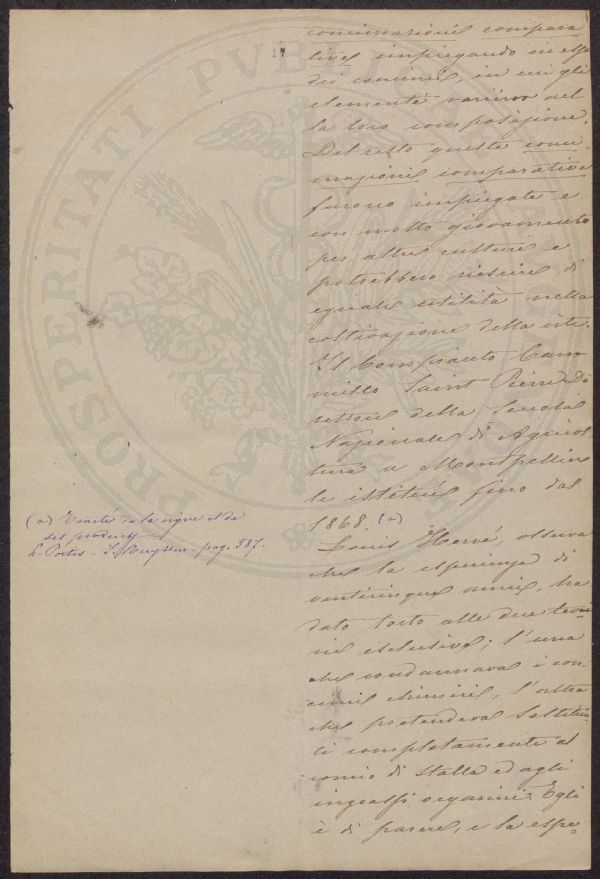 17
concimazioni compara
tive impiegando in esse
dei concimi, in cui gli
elementi varino nel
la loro composizione.
Del resto queste conci
mazioni comparative
furono impiegate e
con molto giovamento
per altre culture e
potrebbero riescire di
eguale utilità nella
coltivazione della vite.
Il Compianto Cam
millo Saint Pierre Di
rettore della Scuola
Nazionale di Agricol
tura a Montpellier
le istituì fino dal
1868. (a)
Louis Hervé, osserva
che la esperienza di
venticinque anni, ha
dato torto alle due teo
rie esclusive; l'una
che condannava i con
cimi chimici, l'altra
che pretendeva sostituir
li completamente al
concio di stalla ed agli
ingrassi organici. Egli
è di parere, e la espe-
(a) Traité de la vigne et de
ses produits
L. Portes - F. Ruyssen - pag. 587.
PROSPERITATI PVBLICAE